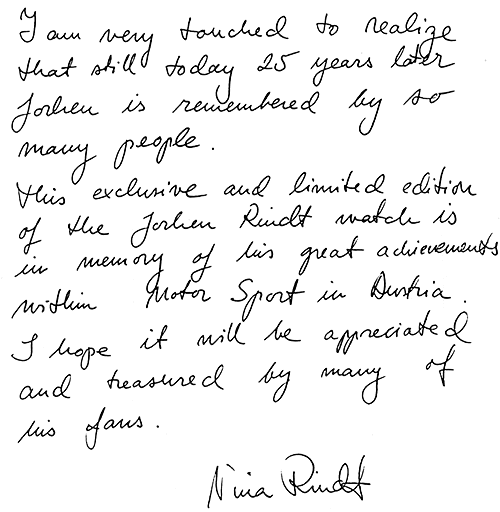 I am very touched to realize
that still today 25 years later
Jochen is remembered by so
many people.
This exclusive and limited edition
of the Jochen Rindt watch is
in memory of his great achievements
within Motor Sport in Austria.
I hope it will be appreciated
and treasured by many of
his fans.
Nina Rindt